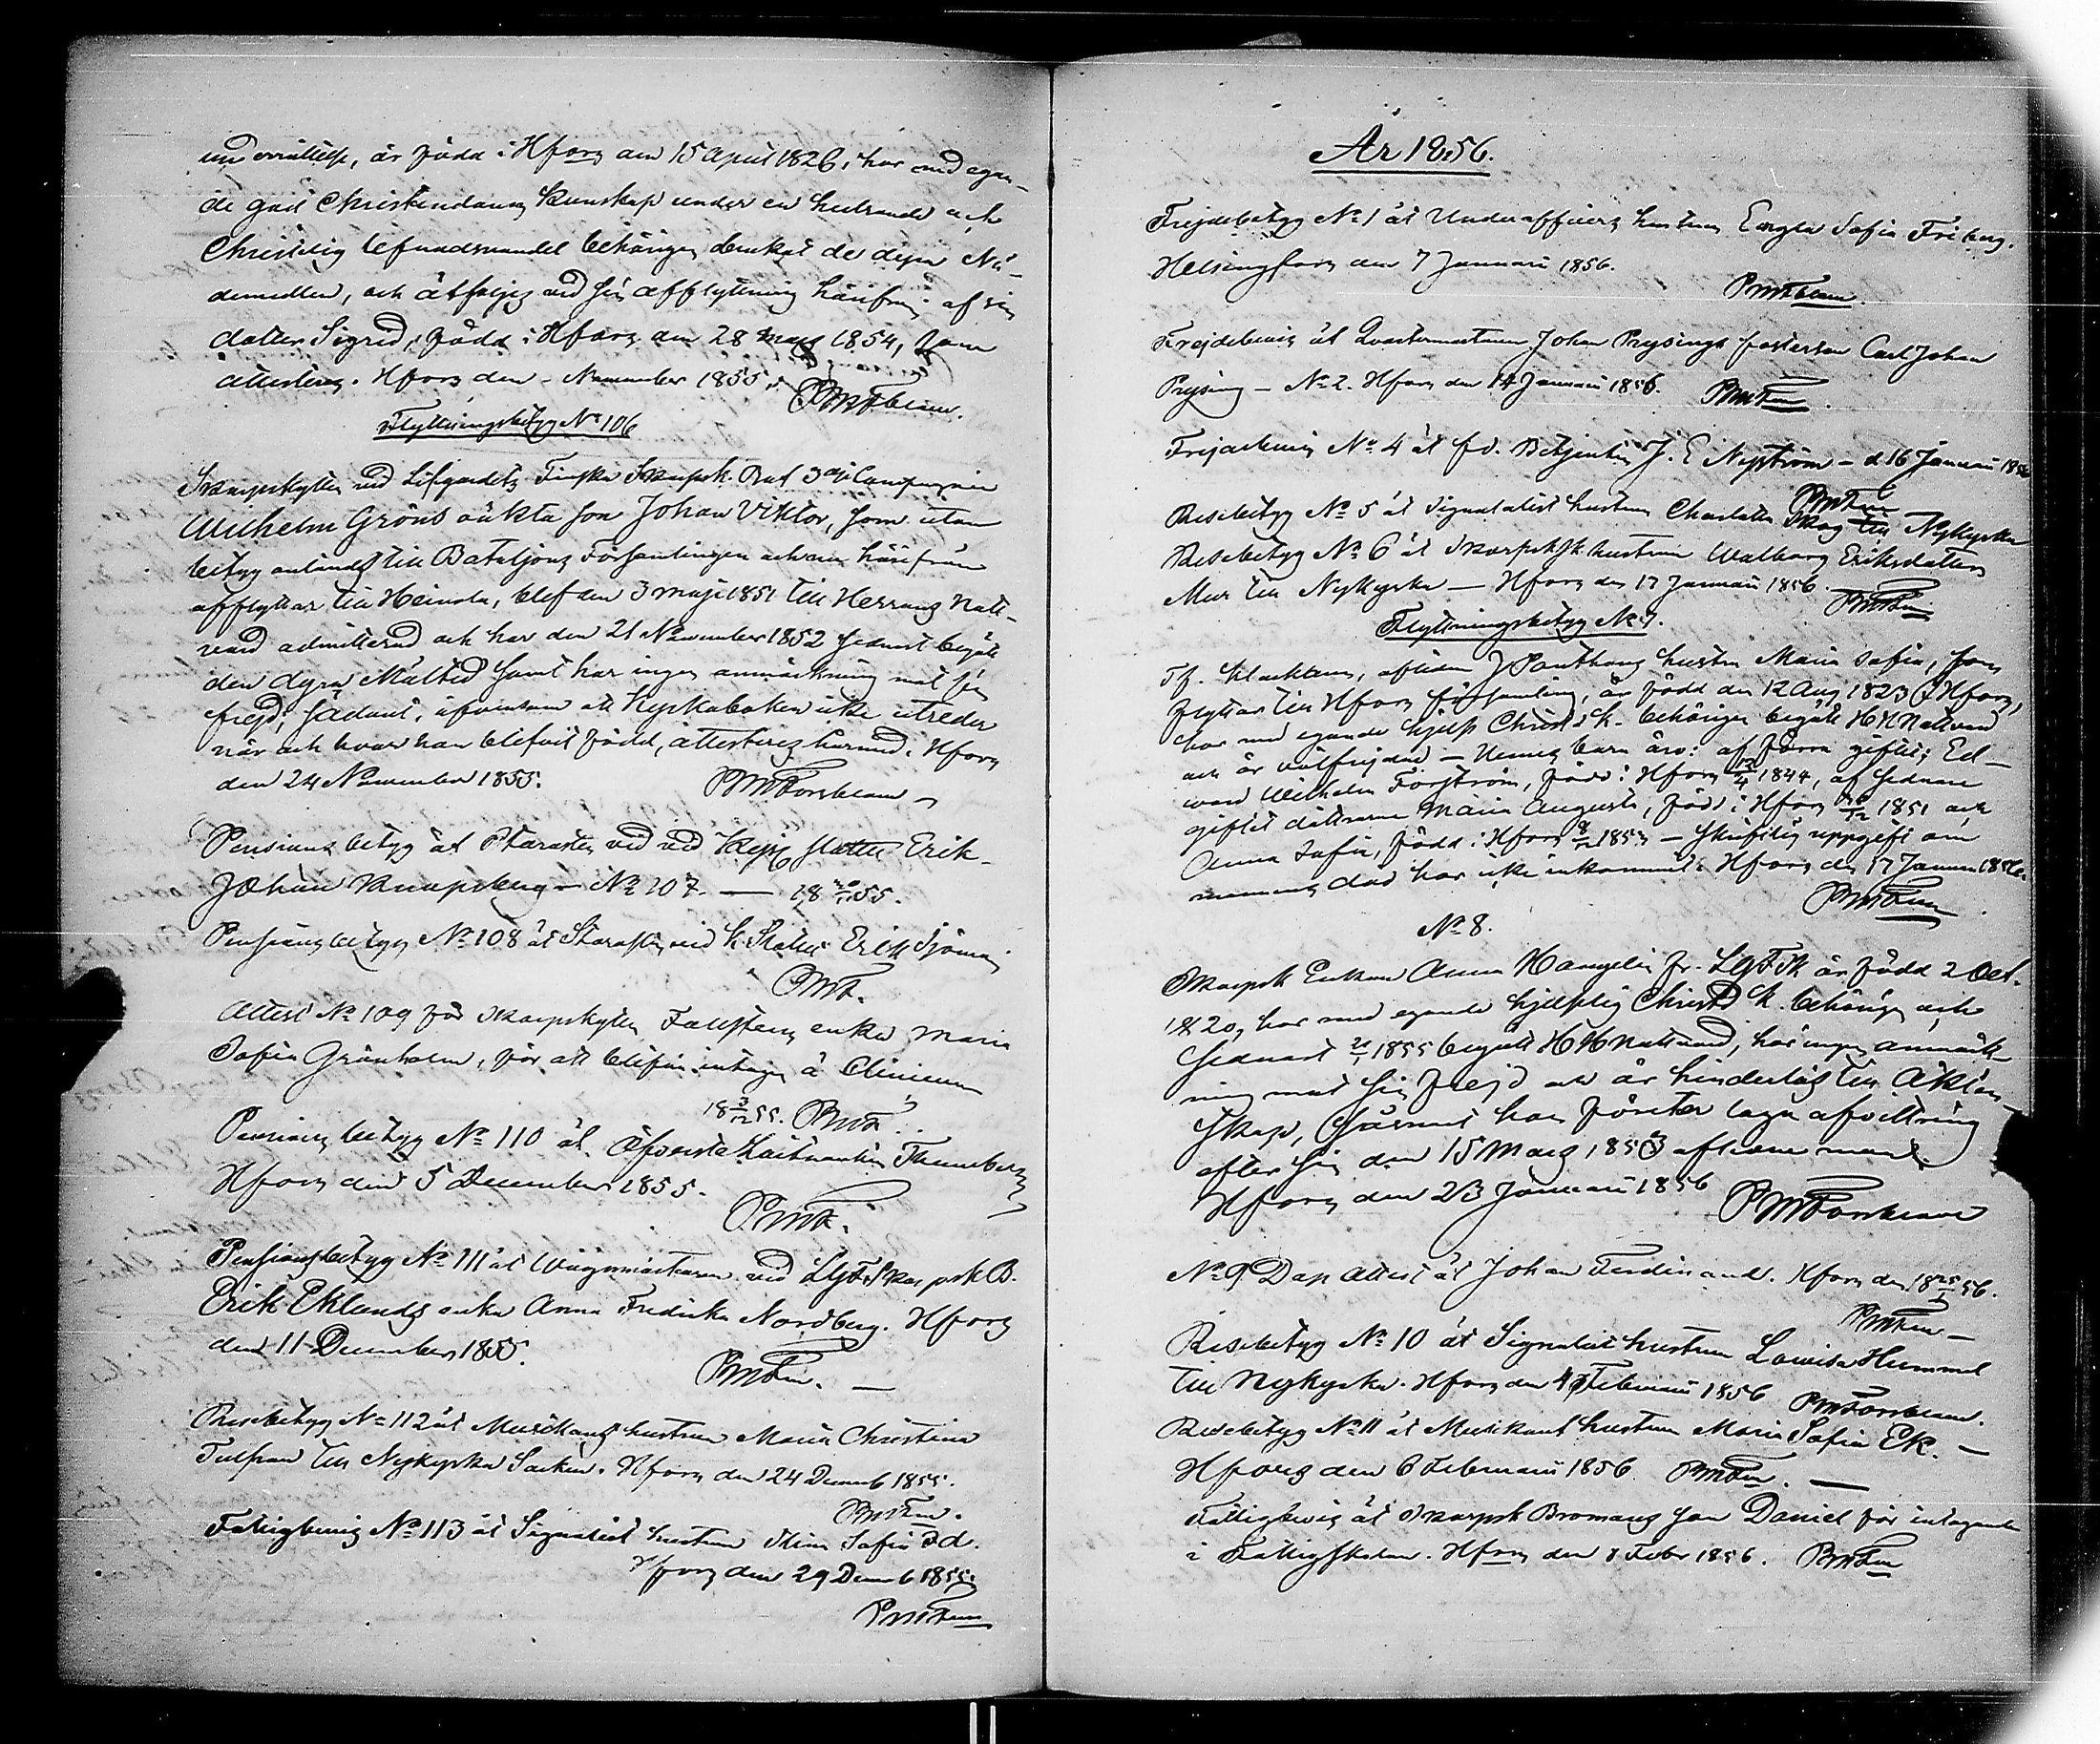 underrättelse, är född i Hfors den 15 April 1826, har med egan-
de god Christendoms kunskap under en hedrande och
Christelig lefnadsvandel behörigen brukat de dyra Nå-
demedlen, och åtföljes vid sin afflyttning härifrån af sin
dotter Sigrid, född i Hfors den 28 Mars 1854, som
attesteras. Hfors den - November 1855.
Flyttningsbetyg No 106
Skarpskytten vid Lifgardets Finska Skarpsk. Bat 3dje Compagnie
Wilhelm Gröns oäkta son Johan Viktor, som utan
betyg anländt till Bataljons Församlingen och nu härifrån
afflyttar till Heinola, blef den 3 Maji 1851 till Herrans Natt-
vard admitterad och har den 21 November 1852 sednast begått
den dyra Måltid samt har ingen anmärkning mot sin
frejd; sådant, äfvensom att Kyrkoboken icke utreder
när och hvar han blifvit född, attesteras härmed. Hfors
den 24 November 1855. PMForsblom
Pensions betyg åt Starasten vid Kejs. Slottet Erik
Johan Knapsberg - No 107. — 18 55.
Pensions betyg No 108 åt Starasten vid K. Slottet Erik Sjöman
PMF.
Attest No 109 för Skarpskytten Fallstens enka Maria
Sofia Grönholm, för att blifva intagen å Clinicum
18 3/12 55. PMF.
Pensions betyg No 110 åt Öfverste Löitnanten Thuneberg
Hfors den 5 December 1855.
PMF.
Pensionsbetyg No 111 åt Wagnmästaren vid LgF. Skarpsk B.
Erik Eklunds enka Anna Fredrika Nordberg. Hfors
den 11 December 1855.
PMFm.
Resebetyg No 112 åt Musikant hustrun Maria Christina
Tulpan till Nykyrka Socken. Hfors den 24 Decemb 1855.
PMFm.
Fattigbevis No 113 åt Signalist hustrun Stina Sofia Ed.
Hfors den 29 Decemb 1855.
PMFm
År 1856.
Frejdebetyg No 1 åt Underofficers hustrun Engla Sofia Friberg.
Helsingfors den 7 Januari 1856.
PMFblom.
Frejdebevis åt Qvartermästaren Johan Prysings fosterson Carl Johan
Prysing - No 2. Hfors den 14 Januari 1856. PMFm.
Frejdebevis No 4 åt fd. Betjenten J. E Nyström - d 16 Januari 1856
PMFm
Resebetyg No 5 åt Signalist hustrun Charlotta Skog till Nykyrka
Resebetyg No 6 åt Skarpsk hustrun Walborg Eriksdotter
Mur till Nykyrka — Hfors den 17 Januari 1856.
PMFm
Flyttningsbetyg No 7.
aflidne J hustru Maria Sofia, som
flyttar till Hfors församling, är född den 12 Aug 1823 i Hfors,
har med egande hjelpl Christ. k. behörigen begått HH Nattvard
och är välfrejdad — Hennes barn äro: af förra giftet; Ed-
ward Wilhelm Forström, född i Hfors 12/4 1844, af sednare
giftet döttrarne Maria Augusta, född i Hfors 1851 och
Anna Sofia, född i Hfors 1853 — skriftlig uppgift om
mannens död har icke inkommit. Hfors den 17 Januari 1856.
PMFm
No 8.
Skarpsk Enkan Anna Hangelin fr. LgFSk är född 2 Oct.
1820, har med egande hjelplig Christ k. behörigen och
sednast 1855 begått HH Nattvard, har ingen anmärk-
ning mot sin frejd och är hinderlös till Äkten-
skap, såsnart hon företer laga afvittring
efter sin den 15 Mars 1853 aflidne man.
Hfors den 23 Januari 1856 PMForsblom
No 9 Dop attest åt Johan Ferdinand. Hfors den 18 25/1 56.
PMFm
Resebetyg No 10 åt Signalist hustrun Lovisa Hummel
till Nykyrka. Hfors den 4 Februari 1856 PMForsblom.
Resebetyg No 11 åt Musikant hustrun Maria Sofia Ek. —
Hfors den 6 Februari 1856. PMFm. —
Fattigbevis åt Skarpsk Bromans son Daniel för intagande
i Fattigskolan. Hfors den 8 Febr 1856. PMFm